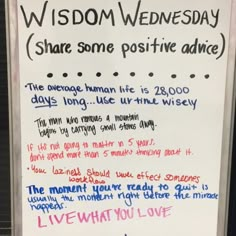 WISDOM WEDNESDAY
(share some positive advice)
The average human life is 28,000
days long...use ur time wisely
The man who removes a mountain
begins by carrying small stones away.
If it's not going to matter in 5 years,
don't spend more than 5 minutes thinking about it.
Your laziness should
effect someones
workflow
The moment you're ready to quit is
usually the moment right before the miracle
happens.
LIVE WHAT YOU LOVE